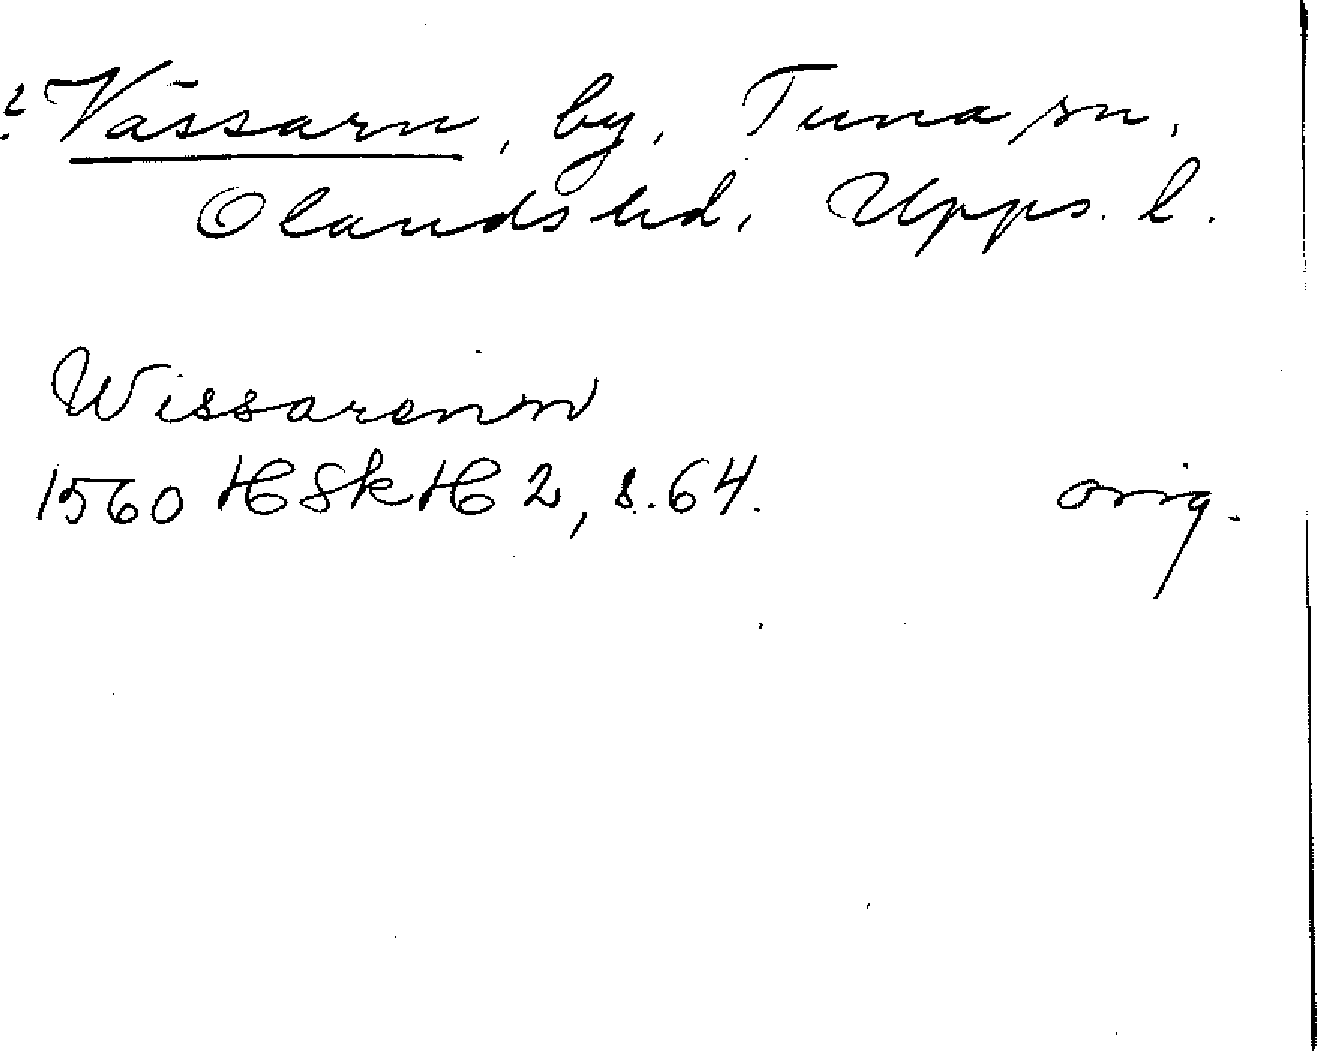 ? Vässarn, by, Tuna sn,
Olands hd, Upps. l.
Wissarenn
1560 HSkH 2, s. 64. orig.